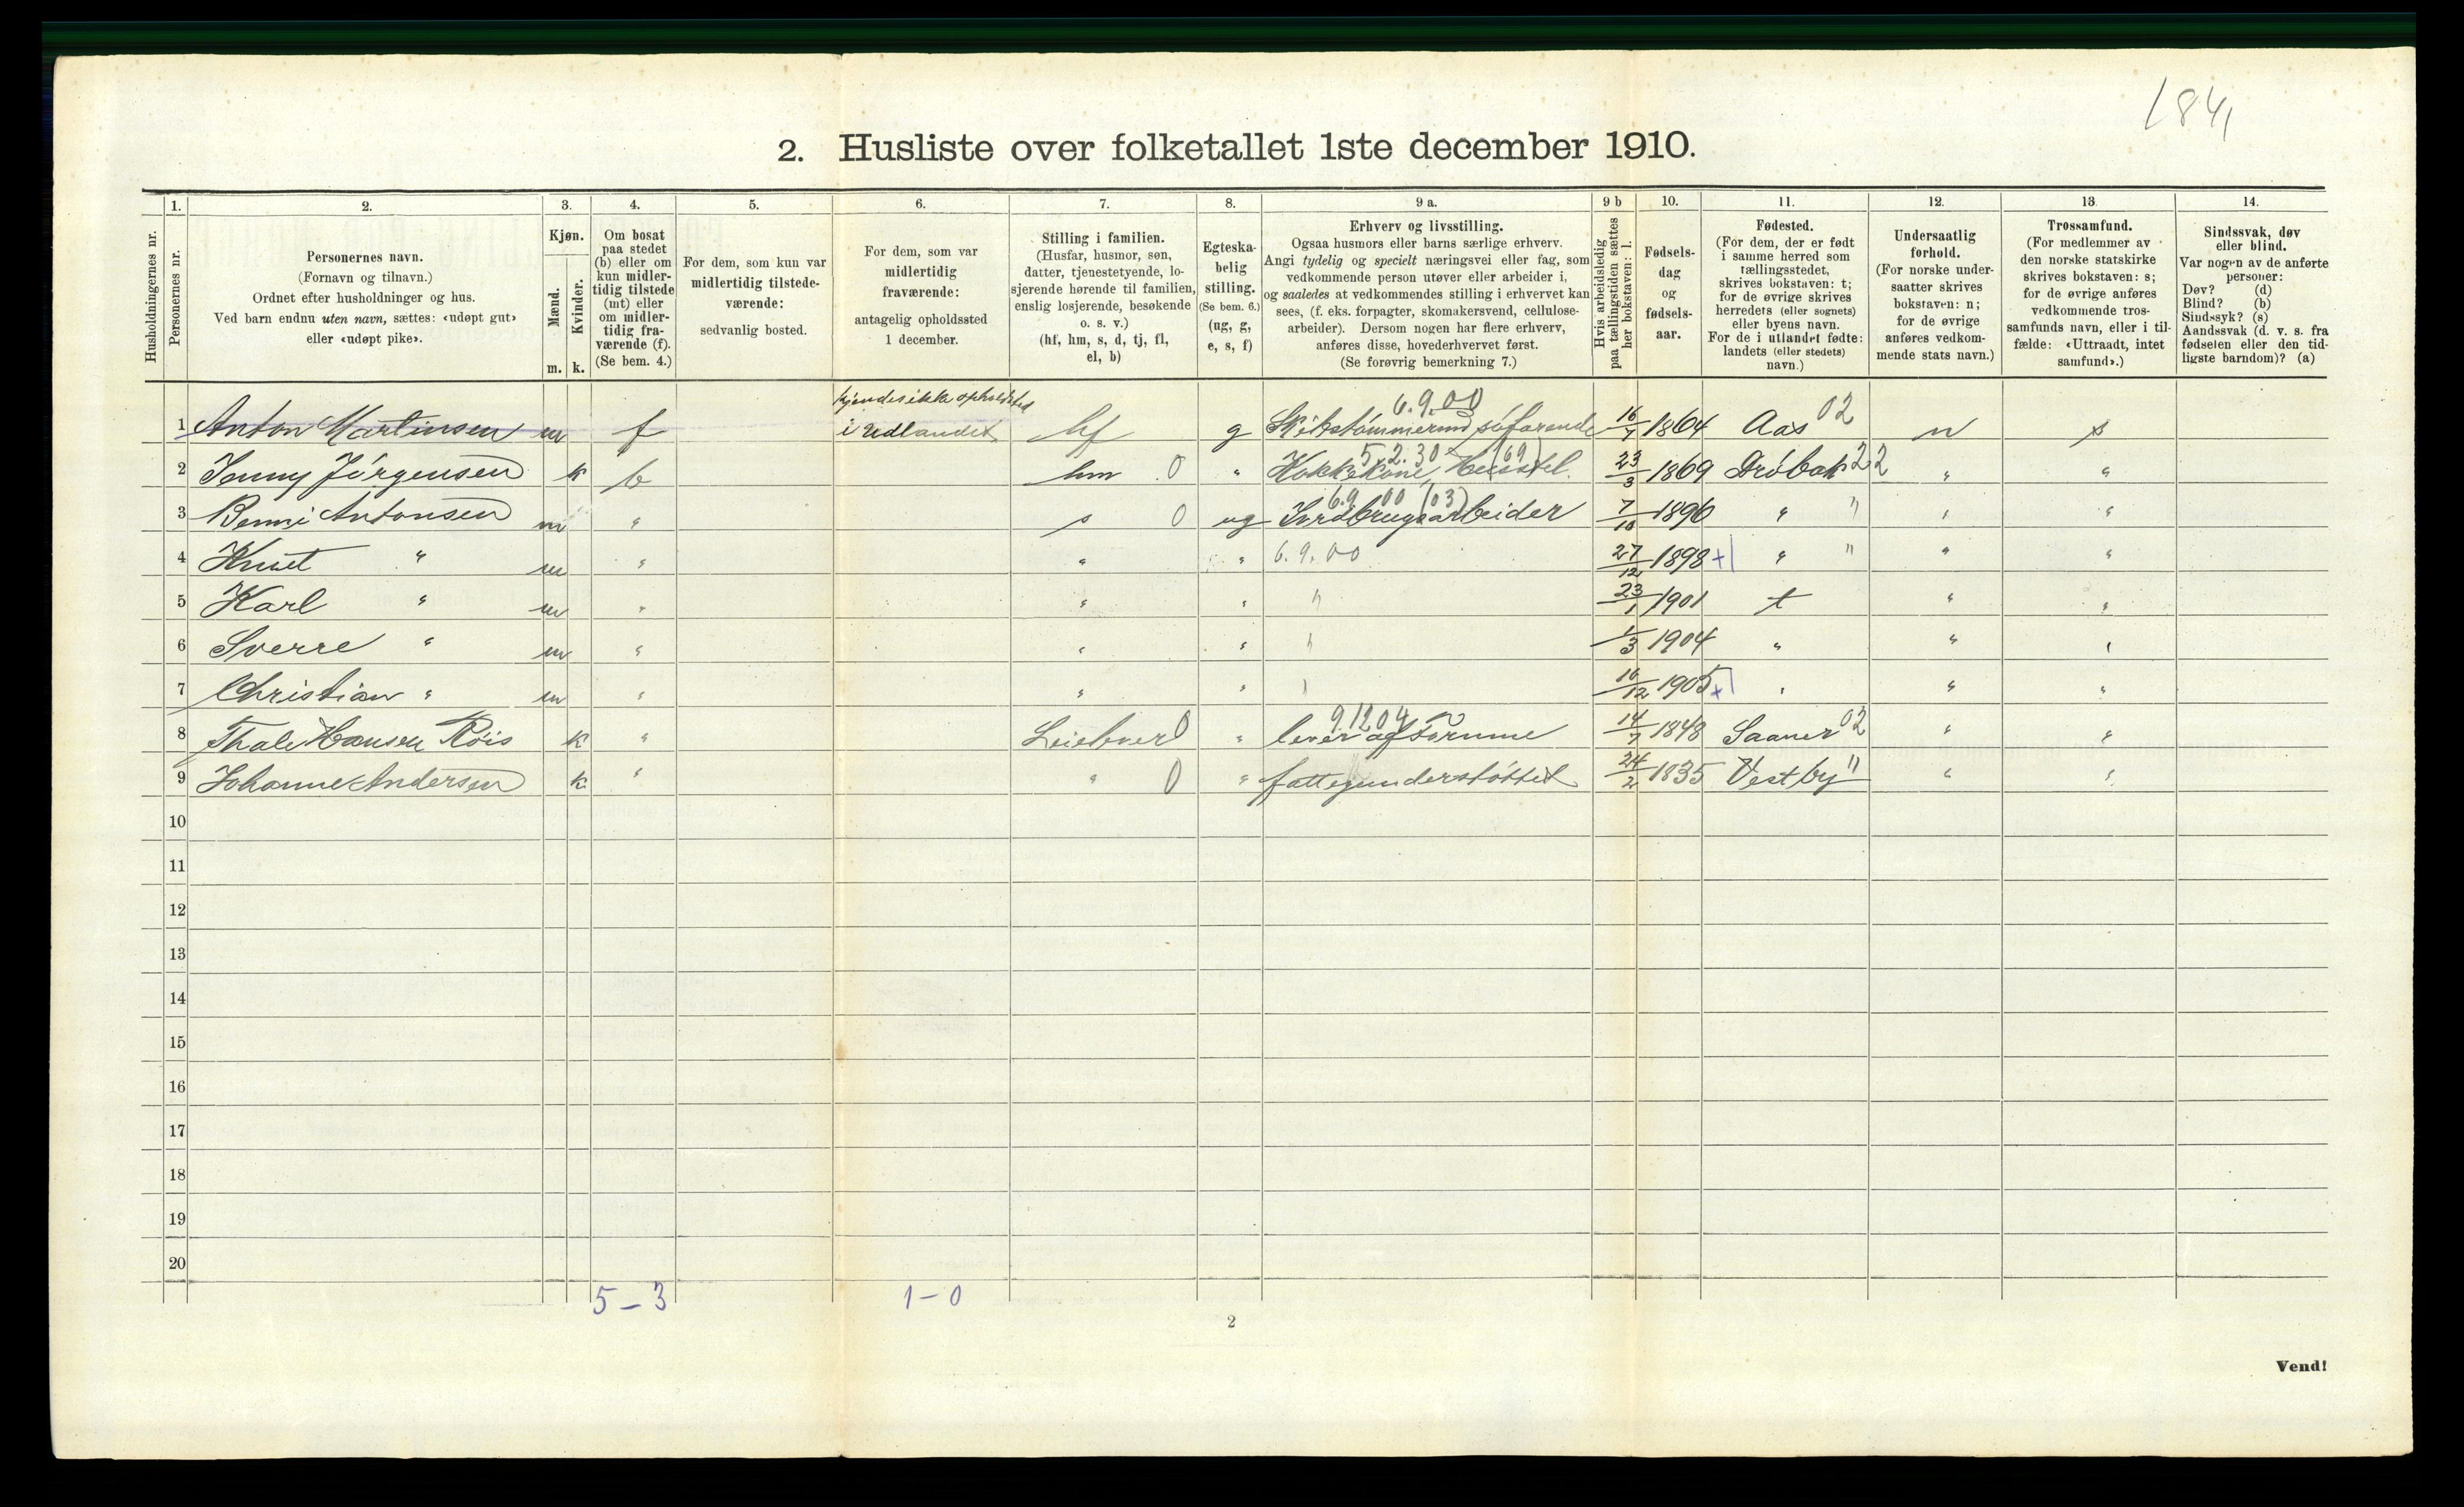 184,
2. Husliste over folketallet 1ste december 1910.
Husholdningernes nr.
1.
Personernes nr.
2.
Personernes navn.
(Fornavn og tilnavn.)
Ordnet efter husholdninger og hus.
Ved barn endnu uten navn, sættes: «udøpt gut»
eller «udøpt pike».
3.
Kjøn.
Mænd.
Kvinder.
m. k.
4.
Om bosat
paa stedet
(b) eller om
kun midler-
tidig tilstede
(mt) eller
om midler-
tidig fra-
værende (f).
(Se bem. 4.)
5.
For dem, som kun var
midlertidig tilstede-
værende:
sedvanlig bosted.
6.
For dem, som var
midlertidig
fraværende:
antagelig opholdssted
1 december.
7.
Stilling i familien.
(Husfar, husmor, søn,
datter, tjenestetyende, lo-
sjerende hørende til familien,
enslig losjerende, besøkende
o. s. v.)
(hf, hm, s, d, tj, fl,
el, b)
8.
Egteska-
belig
stilling.
(Se bem. 6.)
(ug, g,
e, s, f)
9 a.
Erhverv og livsstilling.
Ogsaa husmors eller barns særlige erhverv.
Angi tydelig og specielt næringsvei eller fag, som
vedkommende person utøver eller arbeider i,
og saaledes at vedkommendes stilling i erhvervet kan
sees, (f. eks. forpagter, skomakersvend, cellulose-
arbeider). Dersom nogen har flere erhverv,
anføres disse, hovederhvervet først.
(Se forøvrig bemerkning 7.)
9 b
Hvis arbeidsledig
paa tællingstiden sættes
her bokstaven: l.
10.
Fødsels-
dag
og
fødsels-
aar.
11.
Fødested.
(For dem, der er født
i samme herred som
tællingsstedet,
skrives bokstaven: t;
for de øvrige skrives
herredets (eller sognets)
eller byens navn.
For de i utlandet fødte:
landets (eller stedets)
navn.)
12.
Undersaatlig
forhold.
(For norske under-
saatter skrives
bokstaven: n;
for de øvrige
anføres vedkom-
mende stats navn.)
13.
Trossamfund.
(For medlemmer av
den norske statskirke
skrives bokstaven: s;
for de øvrige anføres
vedkommende tros-
samfunds navn, eller i til-
fælde: «Uttraadt, intet
samfund».)
14.
Sindssvak, døv
eller blind.
Var nogen av de anførte
personer:
Døv? (d)
Blind? (b)
Sindssyk? (s)
Aandssvak (d. v. s. fra
fødselen eller den tid-
ligste barndom)? (a)
kjendes ikke opholdsted 6.9.00
1 Anton Martinsen m f i Udlandet hf g søfarende 16/7 1864 Aas 02 n s
5.2.30 (69)
2 Jenny Jørgensen k b hm 0 " Kokkekone, Husstel. 23/3 1869 Drøbak 22 " "
6.9 00 (03)
3 Benni Antonsen m " s 0 ug Jordbrugsarbeider 7/10 1896 " " " "
4 Knut " m " " " 6.9.00 27/12 1898 +| " " " "
5 Karl " m " " " " 23/1 1901 t " "
6 Sverre " m " " " " 1/3 1904 " " "
7 Christian " m " " " " 16/12 1905 +| " " "
9 12 04
8 Thale Hansen Röis k " Leieboer 0 " lever af Formue 14/7 1848 Saaner 02 " "
9 Johanne Andersen k " " 0 " fattigunderstøttet 24/2 1835 Vestby " " "
10
11
12
13
14
15
16
17
18
19
20
5 – 3 1 – 0
2
Vend!